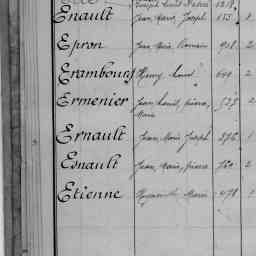 Joseph Louis 1218
Enault Jean Marie Joseph 155 2
Epron Jean Marie Romain 928 2
Erambourg Henry 649 2
Ermenier Jean Louis, pierre,
Marie
Ernault Jean Marie Joseph 296 1
Esnault Jean Marie, pierre 2
Etienne Marie 478 1